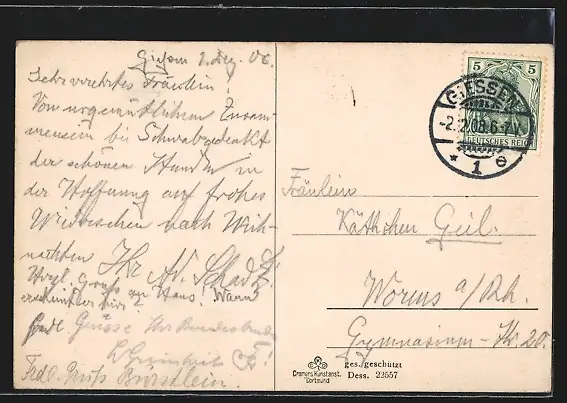 Giessen 1. Dez. 06.
Sehr verehrtes Fräulein!
Von urgemütlichem Zusam
mensein bei Schwab gedenkt
der schönen Stunden in
der Hoffnung auf frohes
Wiedersehen nach Weih-
nachten Ihr Ad. Schad
Hrzl. Gruss an Haus. Wann
Frdl. Grüsse Ihr Bundesbruder
Frdl. Gruß
5 5
DEUTSCHES REICH
GIESSEN
-2.12.06.6-7V.
* 1 e
Fräulein
Käthchen Geil.
Worms a/Rh.
Gymnasium-Str. 20.
Cramers Kunstanst.
Dortmund
ges. geschützt
Dess. 22557